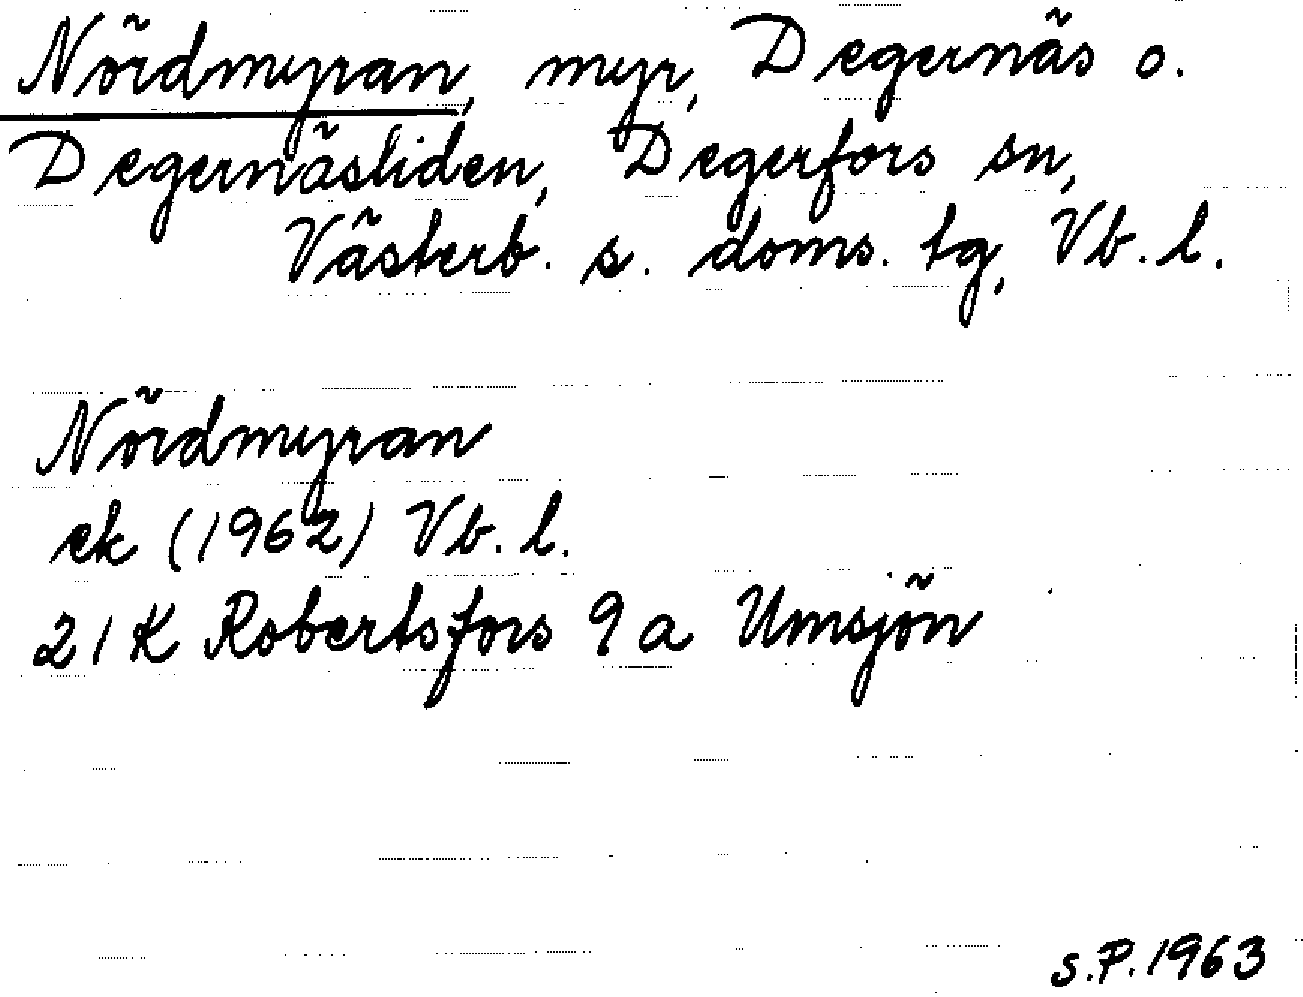 Nördmyran, myr, Degernäs o.
Degernäsliden, Degerfors sn,
Västerb. s. doms. tg, Vb. l.
Nördmyran
ek (1962) Vb. l.
21 K Robertsfors 9 a Umsjön
S.P. 1963